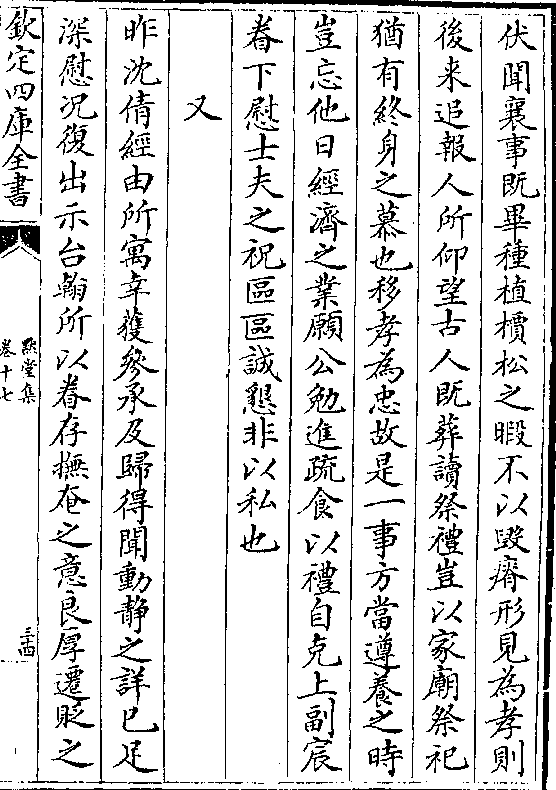 伏聞襄事既畢種植檟松之暇不以毀瘠形見為孝則
後来追報人所仰望古人既葬讀祭禮豈以家廟祭祀
猶有終身之慕也移孝為忠故是一事方當遵養之時
豈忘他日經濟之業願公勉進疏食以禮自克上副宸
眷下慰士夫之祝區區誠懇非以私也
又
昨沈倩經由所寓幸獲參承及歸得聞動静之詳已足
深慰况復出示台翰所以眷存撫奄之意良厚遷貶之
欽定四庫全書
點堂集
卷十七
三十四